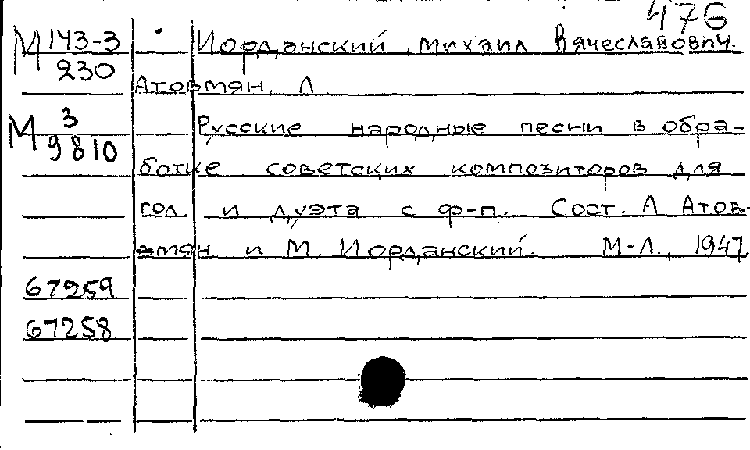 476
М 143-3 Иорданский, Михаил Вячеславович.
230
Атовмян, Л.
М 3 Русские народные песни в обра-
9810
ботке советских композиторов для
гол. и дуэта с ф-п. Сост. Л Атов-
вмян и М. Иорданский. М-Л., 1947
67259
67258